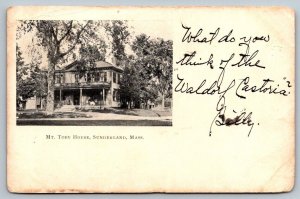 What do you
think of the
"Waldorf Castoria"?
Billy.
Mt. Toby House, Sunderland, Mass.